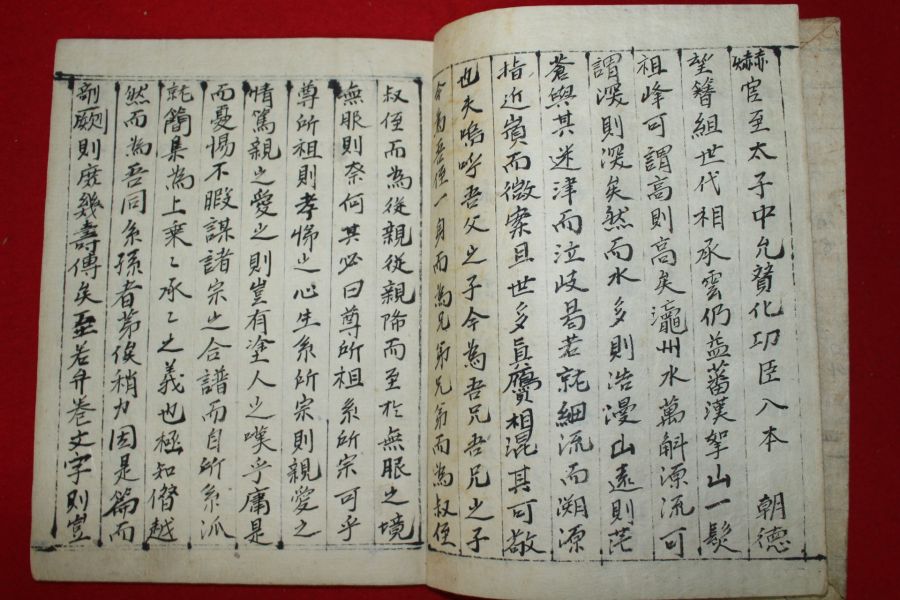 赫官至太子中允贊化功臣入本 朝德
望簪組世代相承雲仍益蕃漢拏山一髮
祖峰可謂高則高矣瀛州水萬斛源流可
謂深則深矣然而水多則浩漫山遠則茫
蒼與其迷津而泣岐曷若就細流而溯源
指近嶺而微案且世多眞贗相混其可敬
也夫嗚呼吾父之子今為吾兄吾兄之子
今為吾侄一身而為兄弟兄弟而為叔侄
叔侄而為從親從親降而至於無服之境
無服則奈何其必曰尊所祖系所宗可乎
尊所祖則孝悌之心生系所宗則親愛之
情篤親之愛之則豈有塗人之嘆乎庸是
而憂惕不暇謀諸宗之合譜而自所系派
就簡集為上乘乀承乀之義也極知僭越
然而為吾同系孫者第俟稍力因是篇而
剞劂則庶幾壽傳矣至若弁卷文字則豈